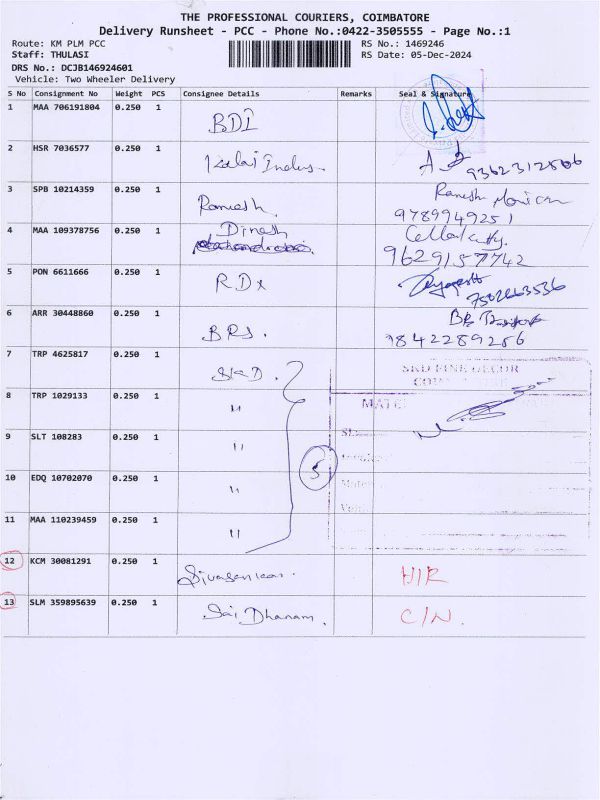 THE PROFESSIONAL COURIERS, COIMBATORE
Delivery Runsheet - PCC - Phone No.:0422-3505555 - Page No.:1
Route: KM PLM PCC RS No.: 1469246
Staff: THULASI RS Date: 05-Dec-2024
DRS No.: DCJB146924601
Vehicle: Two Wheeler Delivery
S No Consignment No Weight PCS Consignee Details Remarks Seal & Signature
1 MAA 706191804 0.250 1 BDI
2 HSR 7036577 0.250 1 Kalai Indus. 9362312566
3 SPB 10214359 0.250 1 Ramesh. Ramesh
9789949251
4 MAA 109378756 0.250 1 Dinesh
9629157742
5 PON 6611666 0.250 1 RDX
7502663536
6 ARR 30448860 0.250 1 BRS.
9842289256
7 TRP 4625817 0.250 1 SKD. SKD FINE DECOR
8 TRP 1029133 0.250 1 " MATE
9 SLT 108283 0.250 1 "
5
10 EDQ 10702070 0.250 1 "
11 MAA 110239459 0.250 1 "
12 KCM 30081291 0.250 1 Sivasankar. HIR
13 SLM 359895639 0.250 1 Sai Dhanam. C/N.